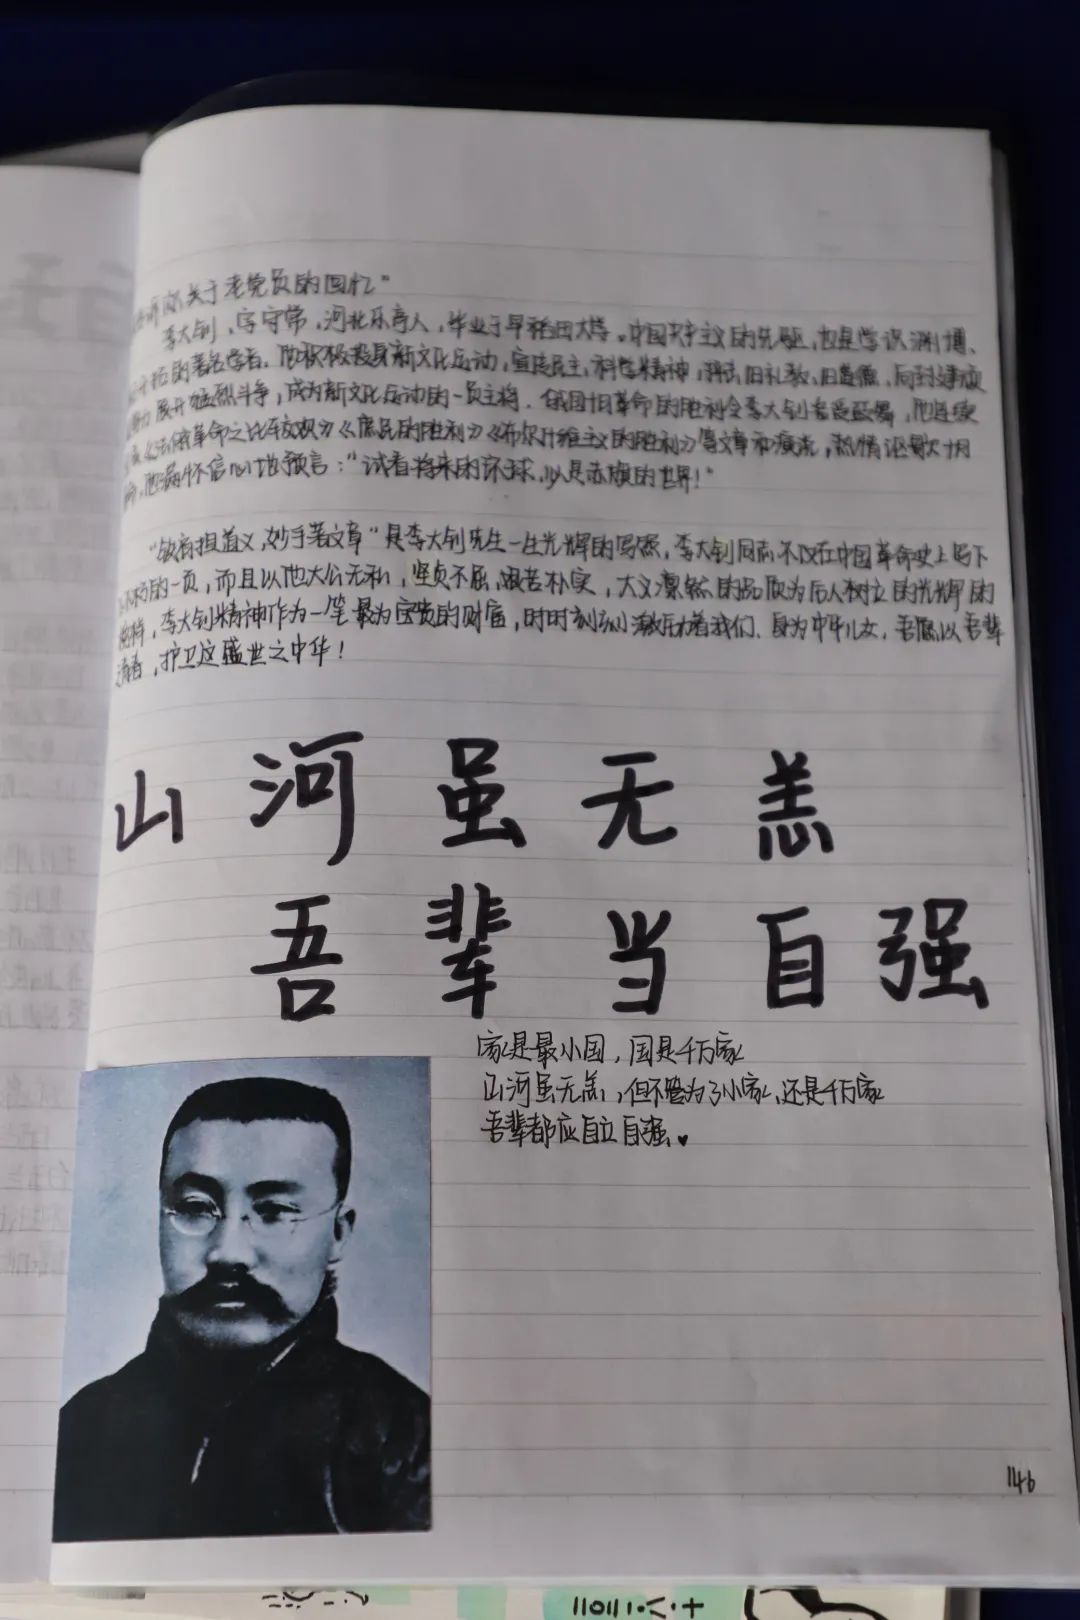 关于老党员的回忆”
李大钊,字守常,河北乐亭人,毕业于早稻田大学。中国共产主义的先驱,也是学识渊博、
的著名学者。他积极投身新文化运动,宣传民主、科学精神,抨击旧礼教、旧道德、向封建顽
展开猛烈斗争,成为新文化运动的一员主将。俄国十月革命的胜利令李大钊备受鼓舞,他连续
《法俄革命之比较观》《庶民的胜利》《布尔什维主义的胜利》等文章和演说,热情讴歌十月
命,他满怀信心地预言:“试看将来的环球,必是赤旗的世界!”
“铁肩担道义,妙手著文章”是李大钊先生一生光辉的写照,李大钊同志不仅在中国革命史上写下
不朽的一页,而且以他大公无私,坚贞不屈,艰苦朴实,大义凛然的品质为后人树立的光辉的
榜样,李大钊精神作为一笔最为宝贵的财富,时时刻刻激励着我们、身为中华儿女,吾愿以吾辈
青春,护卫这盛世之中华!
山河虽无恙
吾辈当自强
家是最小国,国是千万家
山河虽无恙,但不管为了小家,还是千万家
吾辈都应自立自强。
146